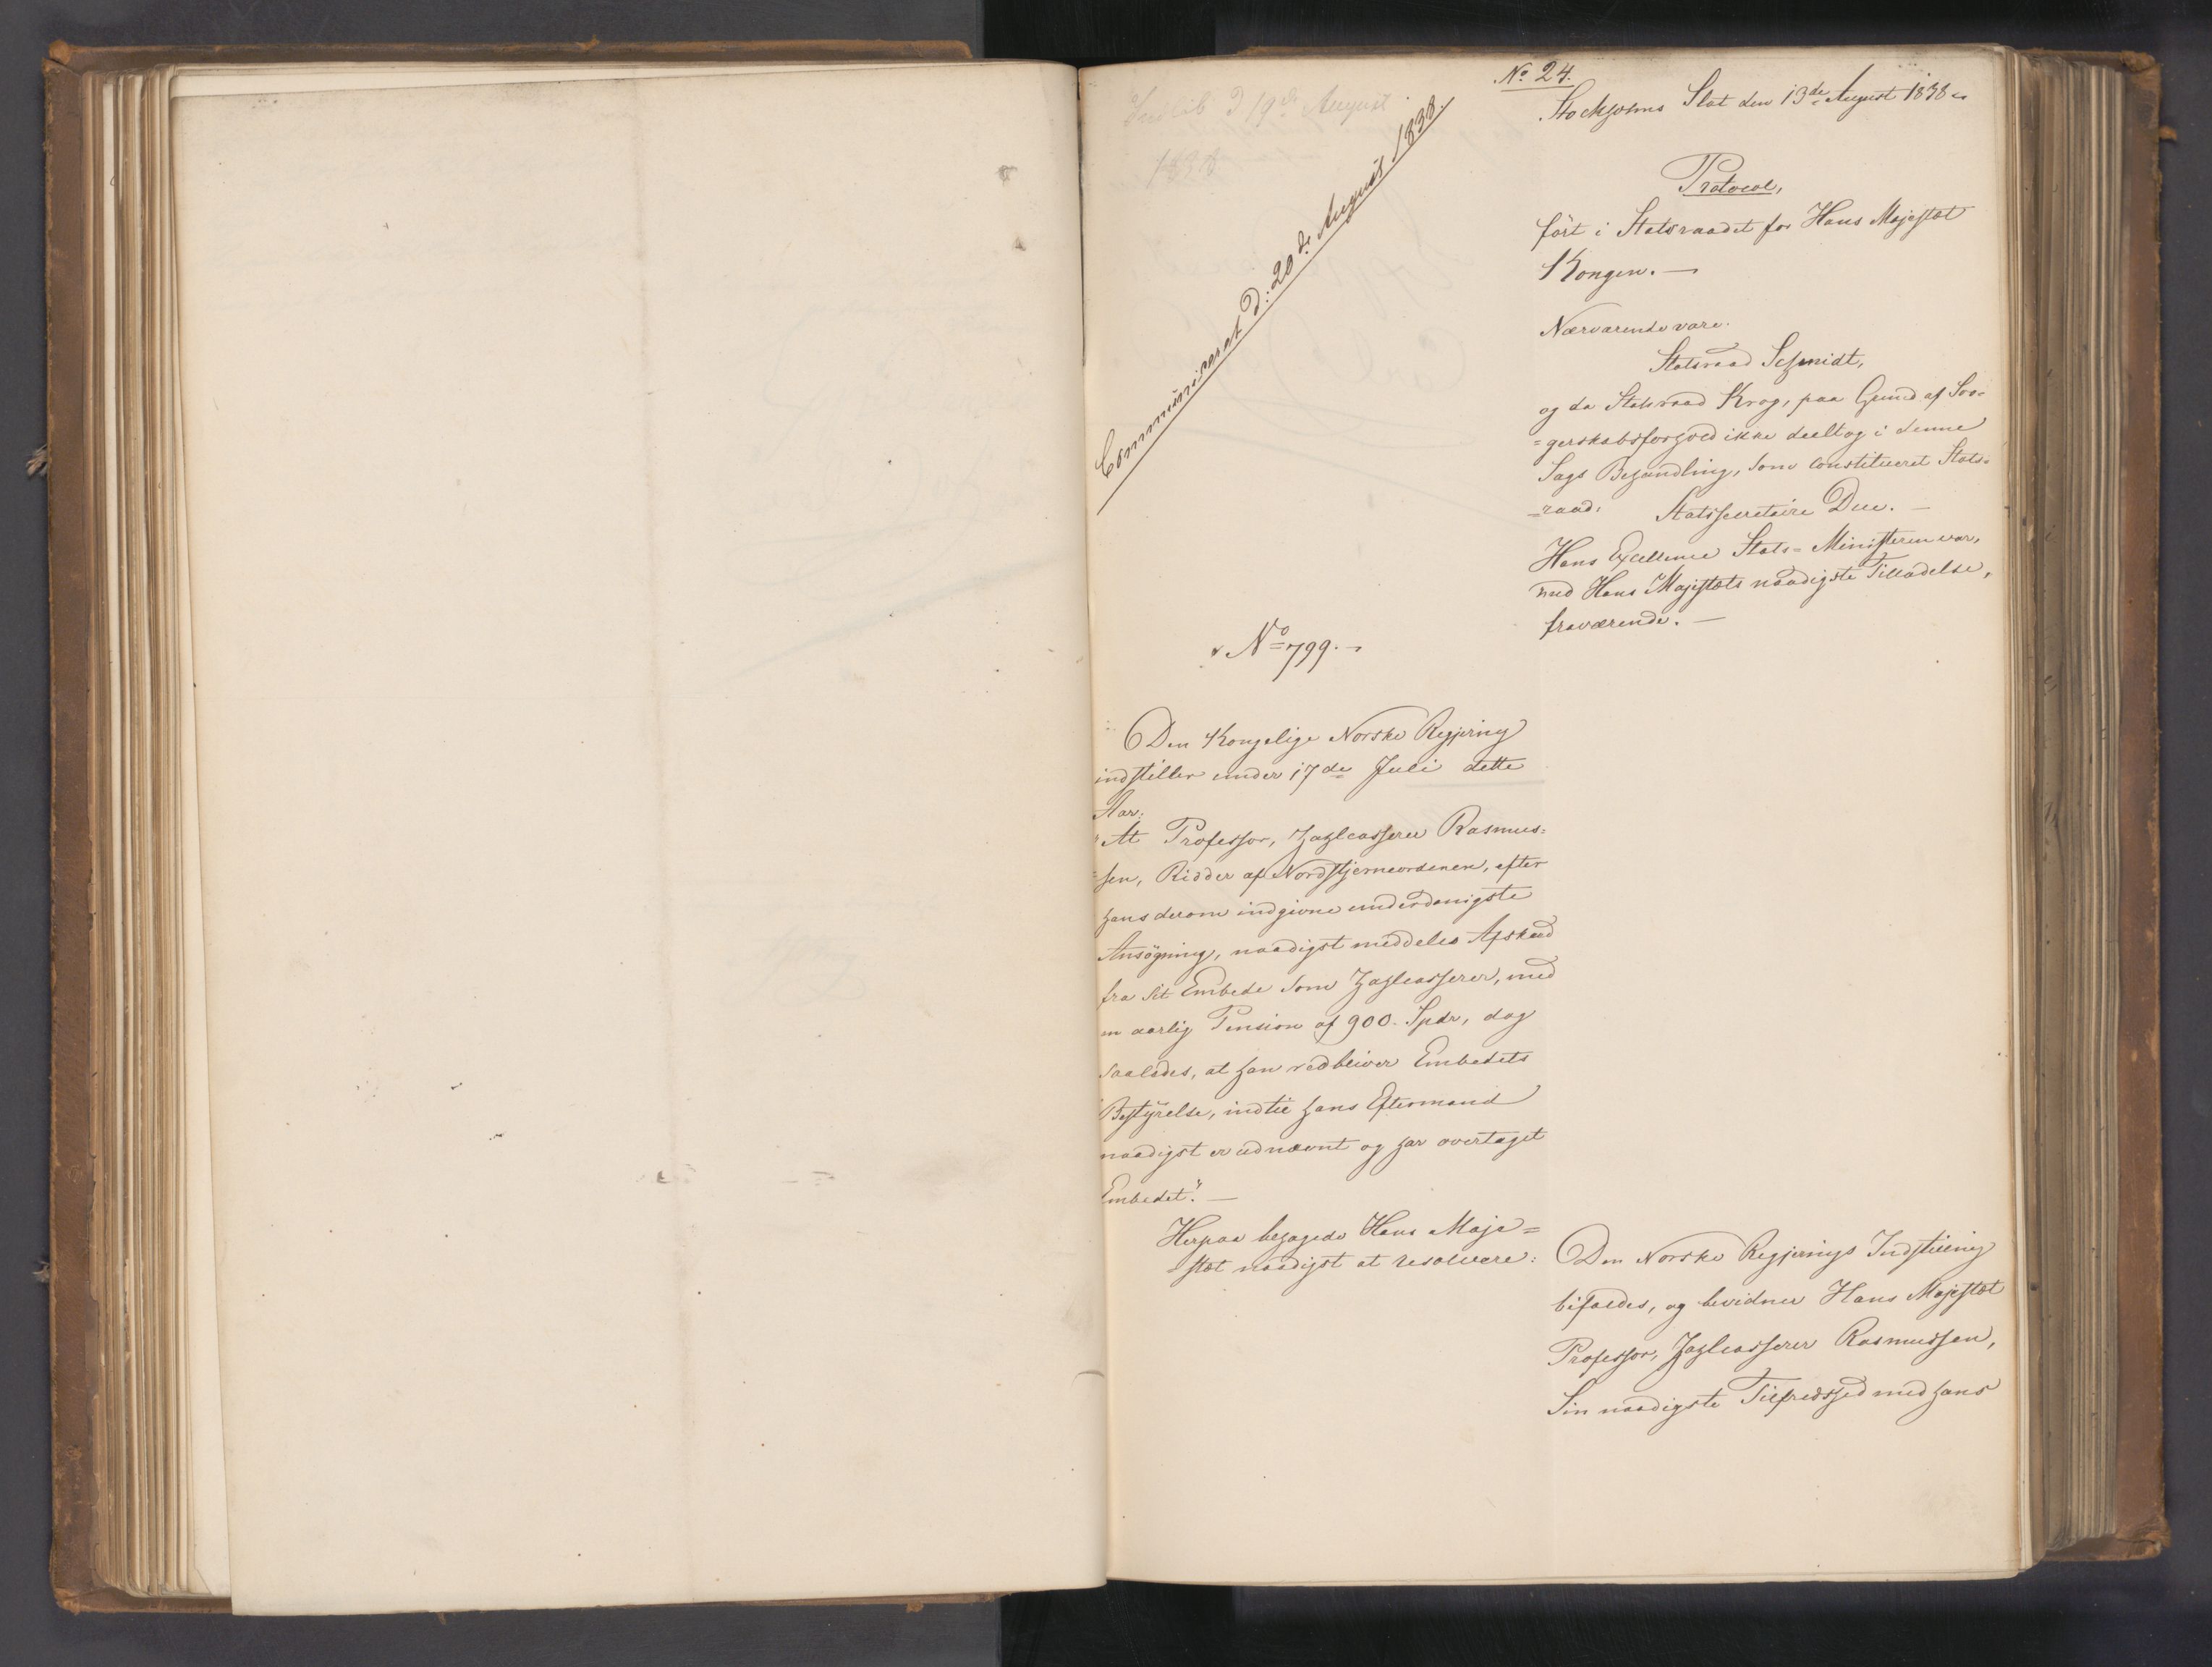 No 24.
Indleb d 19de August
1838
Communiceret d: 20de August 1838.
Stockholms Slot den 13de August 1838
Protocol,
ført i Statsraadet for Hans Majestæt
Kongen. —
Nærværende vare:
Statsraad Schmidt,
og da Statsraad Krog, paa Grund af Svo-
=gerskabsforhold ikke deeltog i denne
Sags Behandling, som constitueret Stats-
=raad: Statssecretaire Due. —
Hans Excellence Stats=Ministeren var,
med Hans Majestæts naadigste Tilladelse,
fraværende. —
No 799. —
Den Kongelige Norske Regjering
indstiller under 17de Juli dette
Aar:
"At Professor, Zahlcasserer Rasmus=
=sen, Ridder af Nordstjerneordenen, efter
hans derom indgivne underdanigste
Ansøgning, naadigst meddeles Afskeed
fra sit Embede som Zahlcasserer, med
en aarlig Pension af 900 Spdr, dog
saaledes, at han vedbliver Embedets
Bestyrelse, indtil hans Eftermand
naadigst er udnævnt og har overtaget
Embedet". —
Herpaa behagede Hans Maje=
=stæt naadigst at resolvere:
Den Norske Regjerings Indstilling
bifaldes, og bevidner Hans Majestæt
Professor, Zahlcasserer Rasmussen,
Sin naadigste Tilfredshed med hans